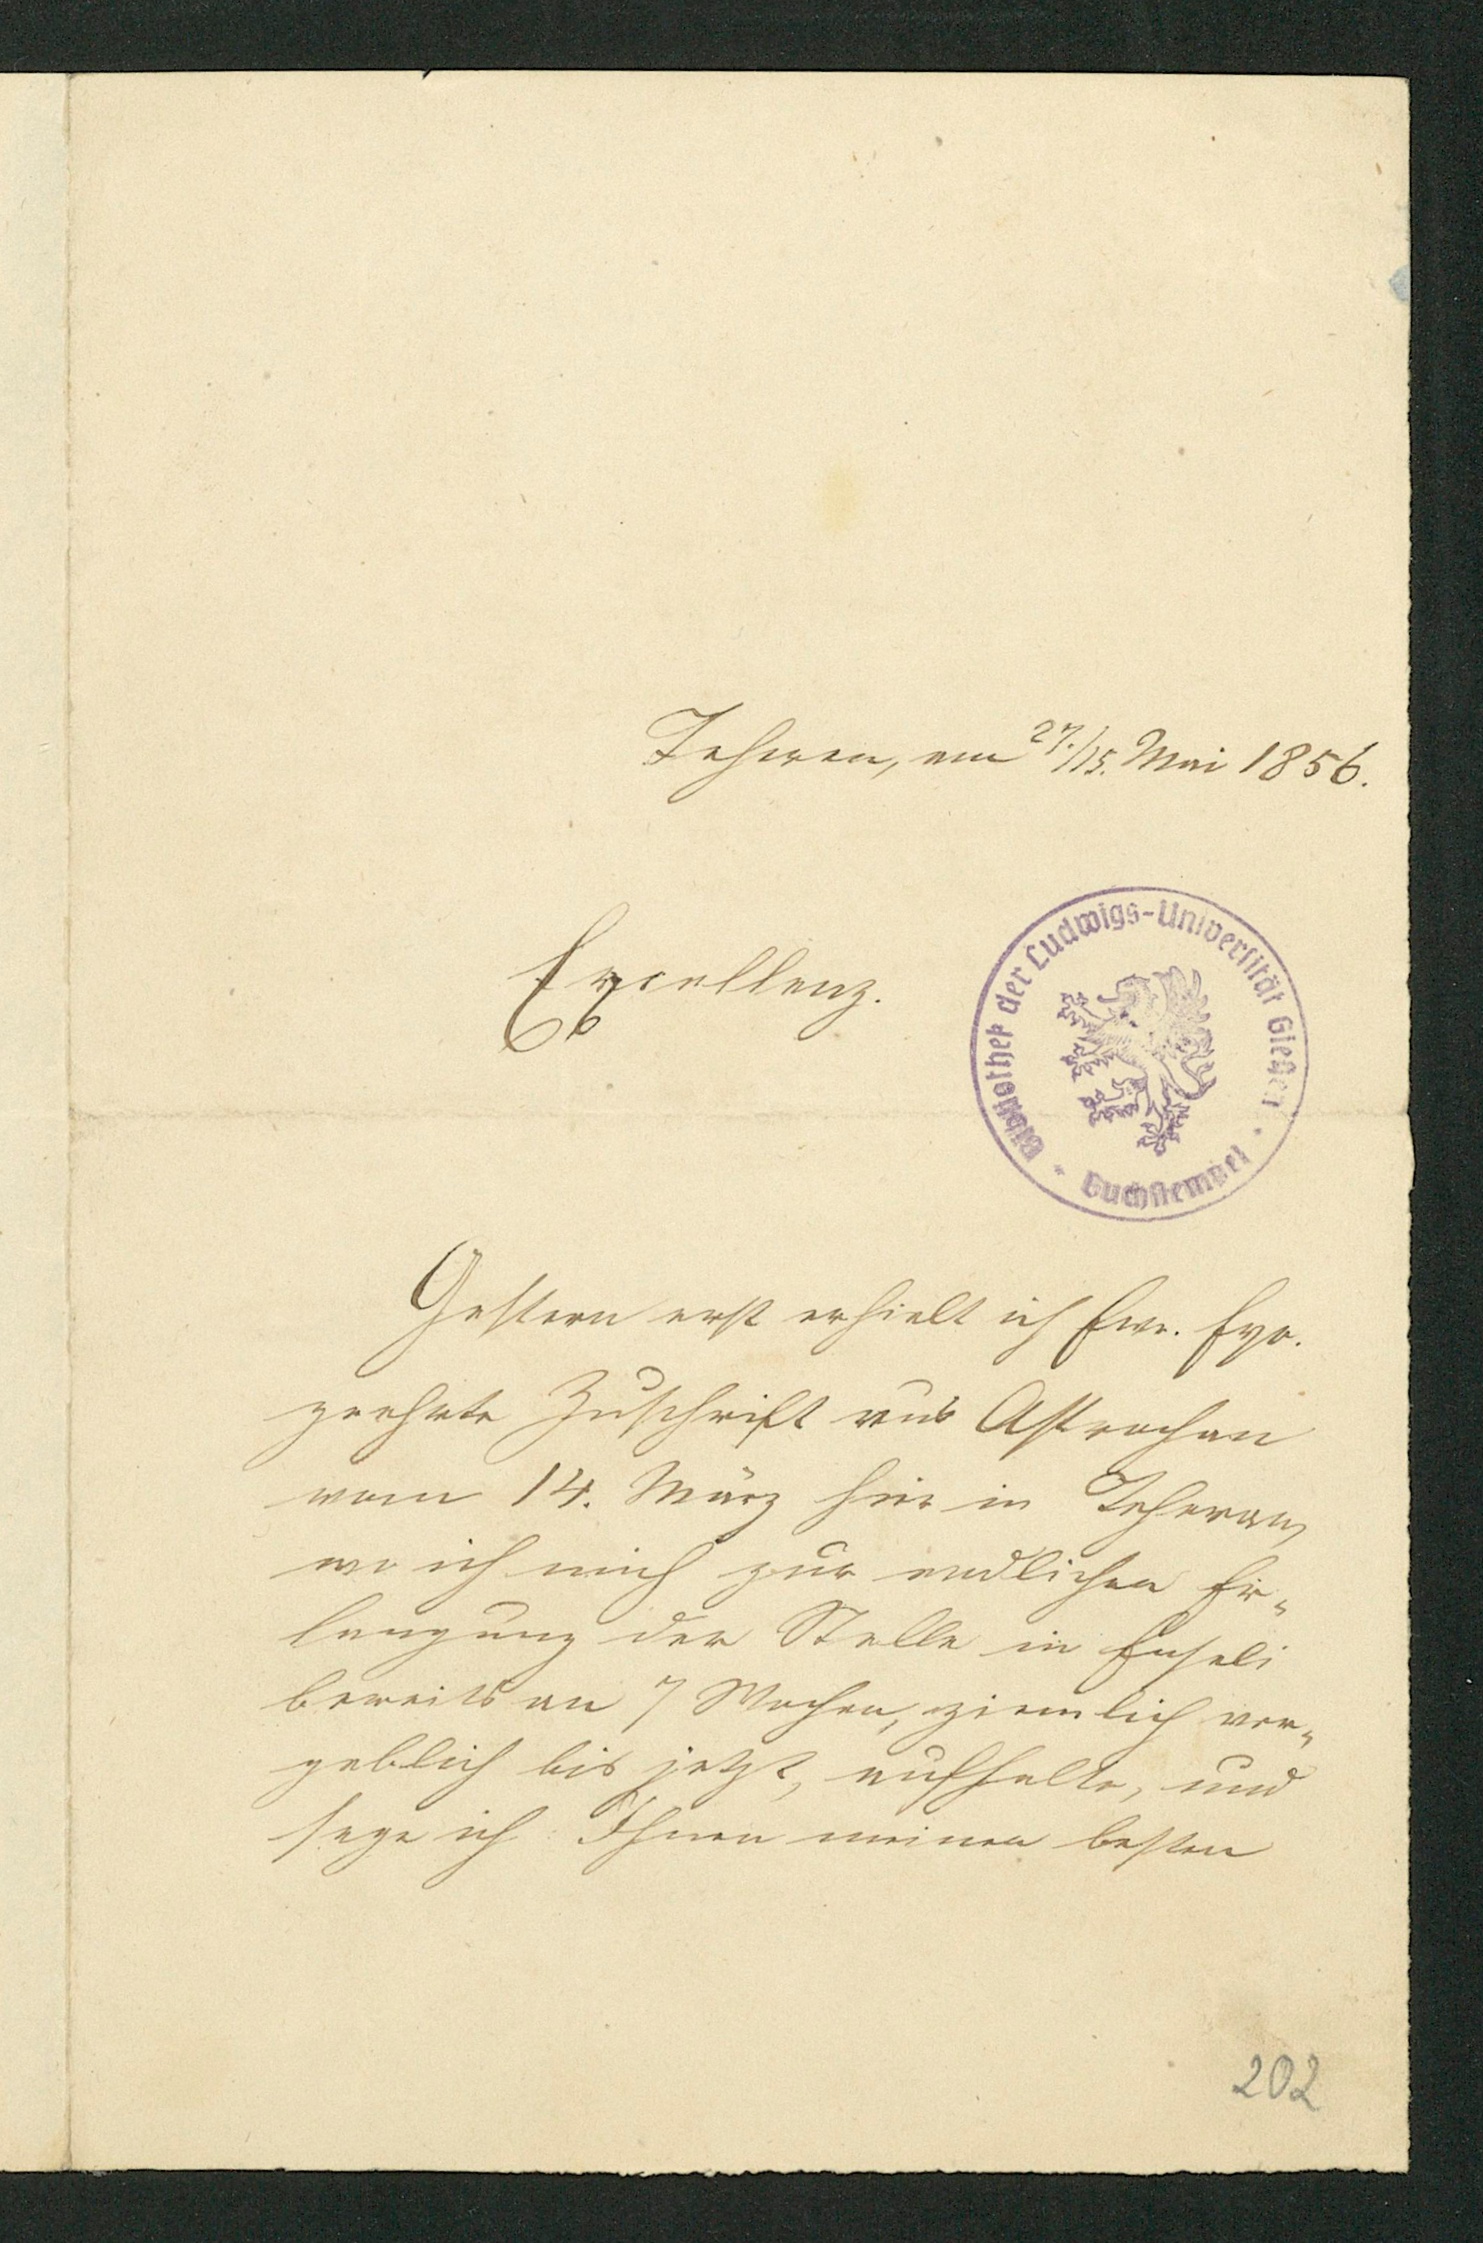 Teheran, am 27./15. Mai 1856.
Excellenz.
Bibliothek der Ludwigs-Universität Gießen
Buchstempel
Gestern erst erhielt ich Ew. Exc.
geehrte Zuschrift aus Astrachan
vom 14. März hier in Teheran,
wo ich mich zur endlichen Er-
langung der Stelle in Enseli
bereits an 7 Wochen, ziemlich ver-
geblich bis jetzt, aufhalte, und
sage ich Ihnen meinen besten
202